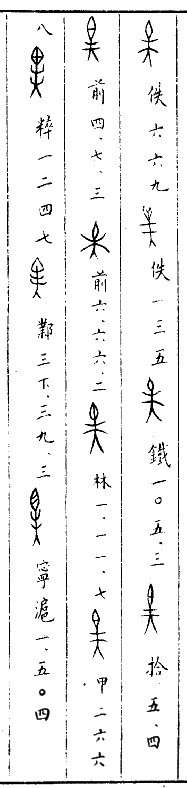 佚六六九 佚一三五 鐵一〇五、三 拾五、四
前四、七、三 前六、六六、二 林一、一一、七 甲二六六
八 粹一二四七 鄴三下、三九、三 寧滬一、五〇四